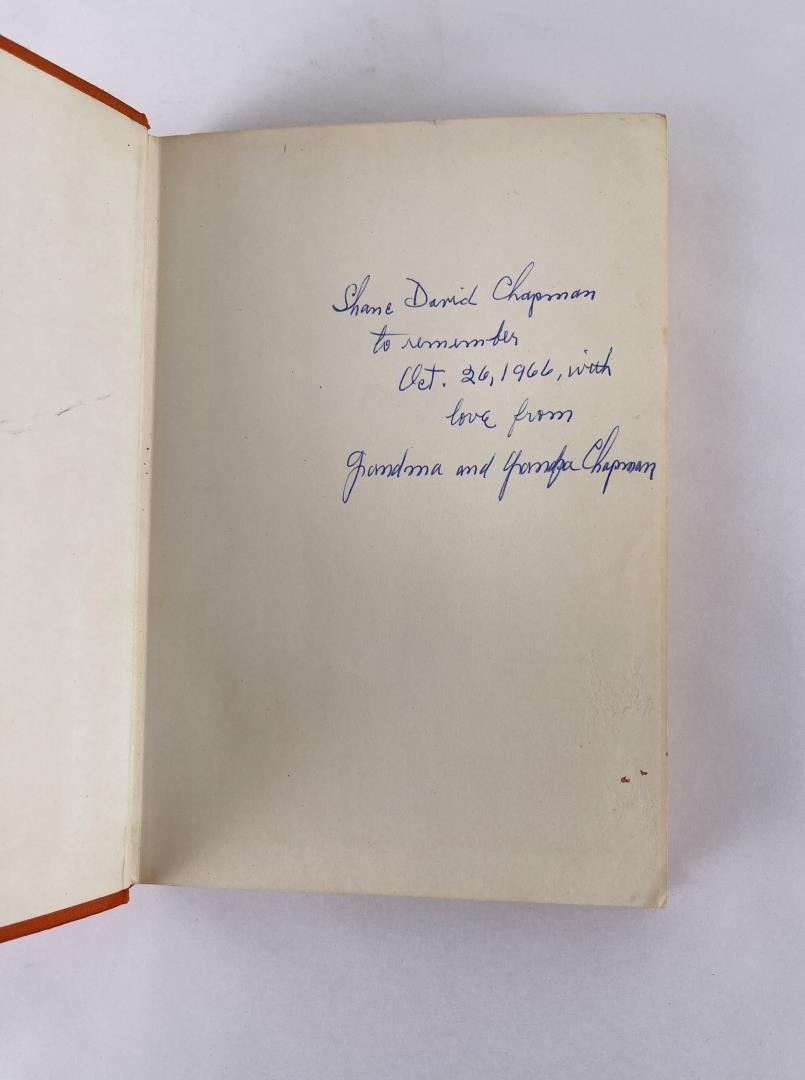 Shane David Chapman
to remember
Oct. 26, 1966, with
love from
Grandma and Grandpa Chapman